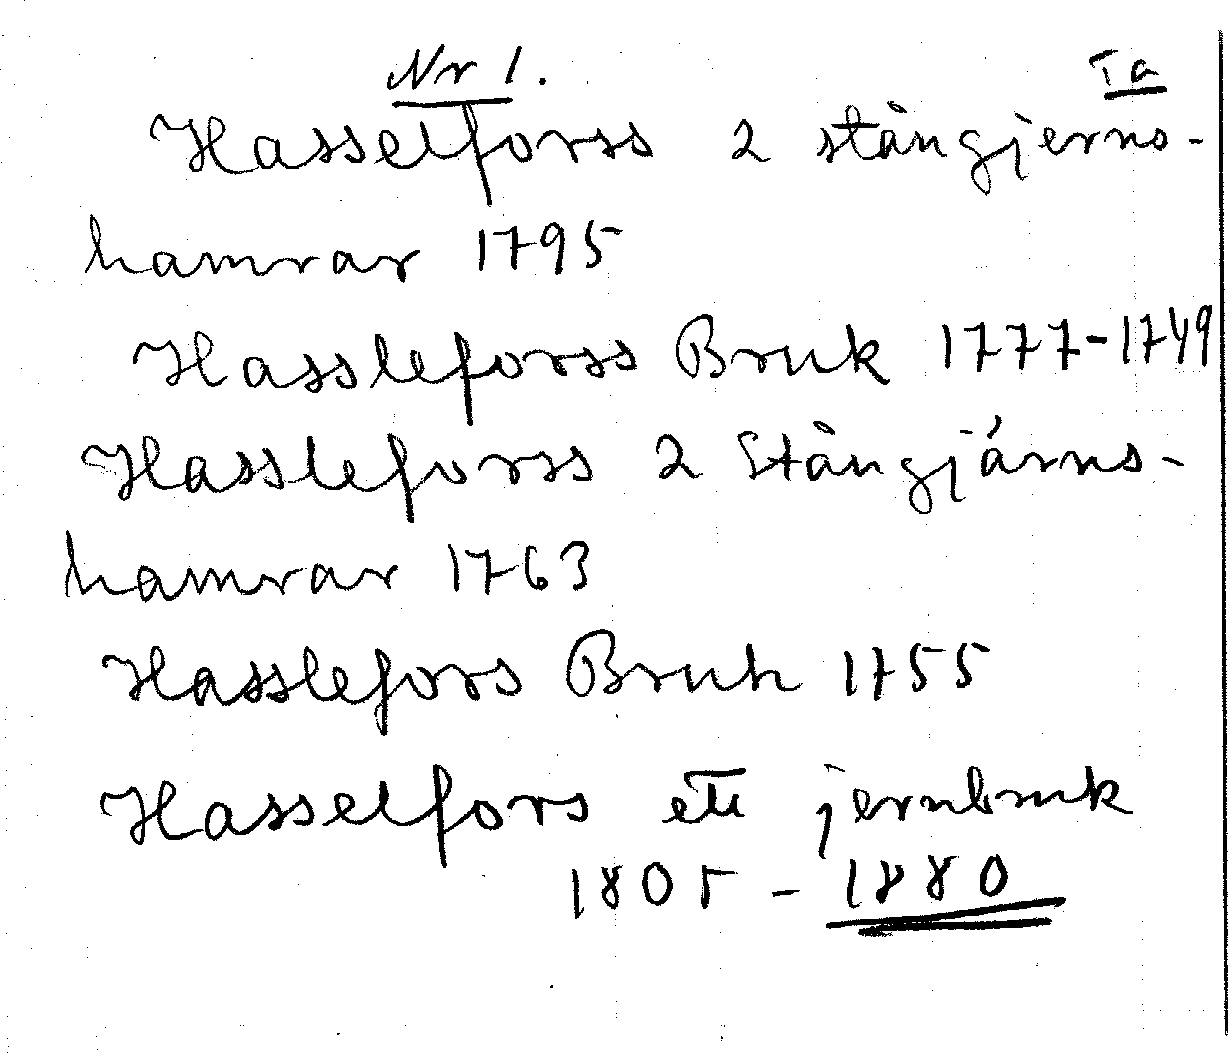 Nr 1. Ta
Hasselforss 2 stångjerns-
hamrar 1795
Hassleforss Bruk 1777-1749
Hassleforss 2 Stångjärns-
hamrar 1763
Hasslefors Bruk 1755
Hasselfors ett jernbruk
1805 - 1880